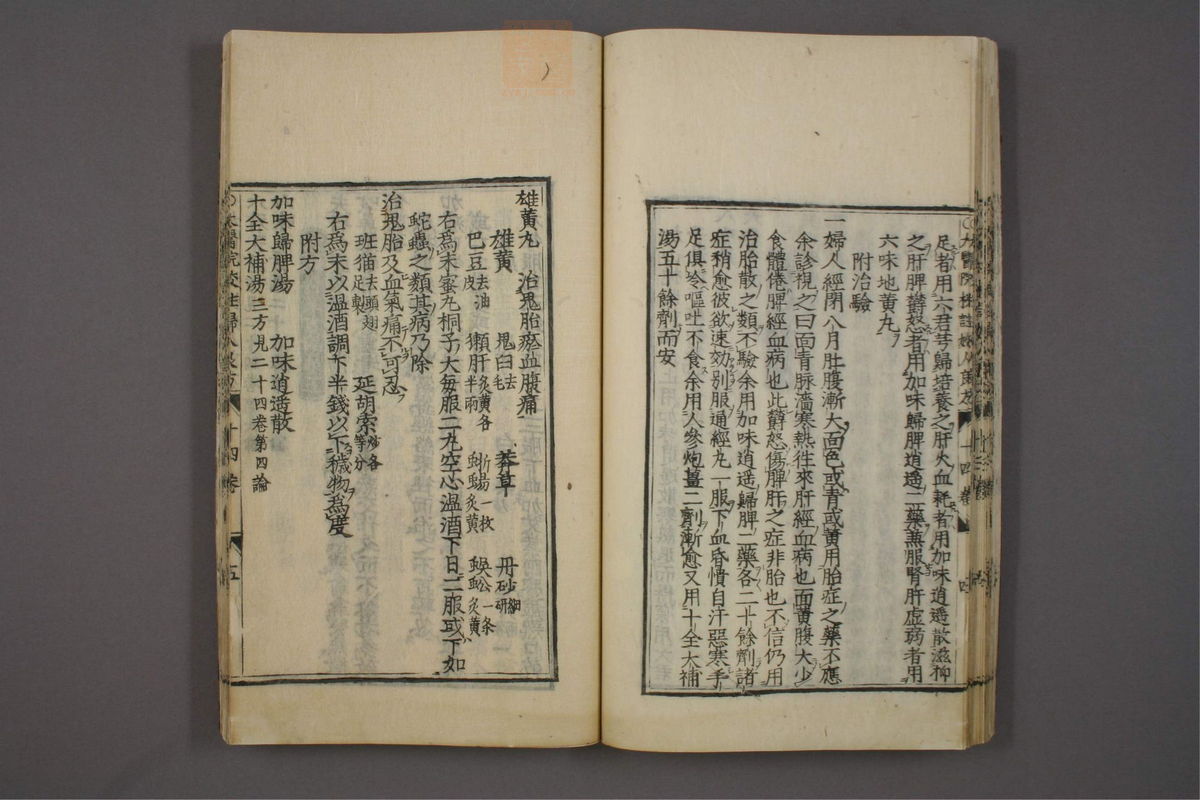 足者用六君芎歸培養之肝火血耗者用加味逍遥散滋抑
之肝脾欝怒者用加味歸脾逍遥二藥兼服腎肝虚弱者用
六味地黄丸
附治驗
一婦人經閉八月肚腹漸大面色或青或黄用胎症之藥不應
余診視之曰面青脉濇寒熱徃來肝經血病也面黄腹大少
食體倦脾經血病也此欝怒傷脾肝之症非胎也不信仍用
治胎散之類不驗余用加味逍遥歸脾二藥各二十餘劑諸
症稍愈彼欲速効別服通經丸一服下血昏憒自汗惡寒手
足俱冷嘔吐不食余用人參炮薑二劑漸愈又用十全大補
湯五十餘劑而安
十四卷
雄黄丸 治鬼胎瘀血腹痛
雄黄 鬼臼去毛 莽草 丹砂細研
巴豆去油皮 獺肝炙黄各半兩 蜥蜴一枚炙黄 蜈蚣一条炙黄
右爲末蜜丸桐子大毎服二丸空心温酒下日二服或下如
蛇蟲之類其病乃除
治鬼胎及血氣痛不可忍
班猫去頭翅足製 延胡索炒各等分
右爲末以温酒調下半錢以下穢物爲度
附方
加味歸脾湯 加味逍遥散
十全大補湯三方見二十四卷第四論
十四卷 五